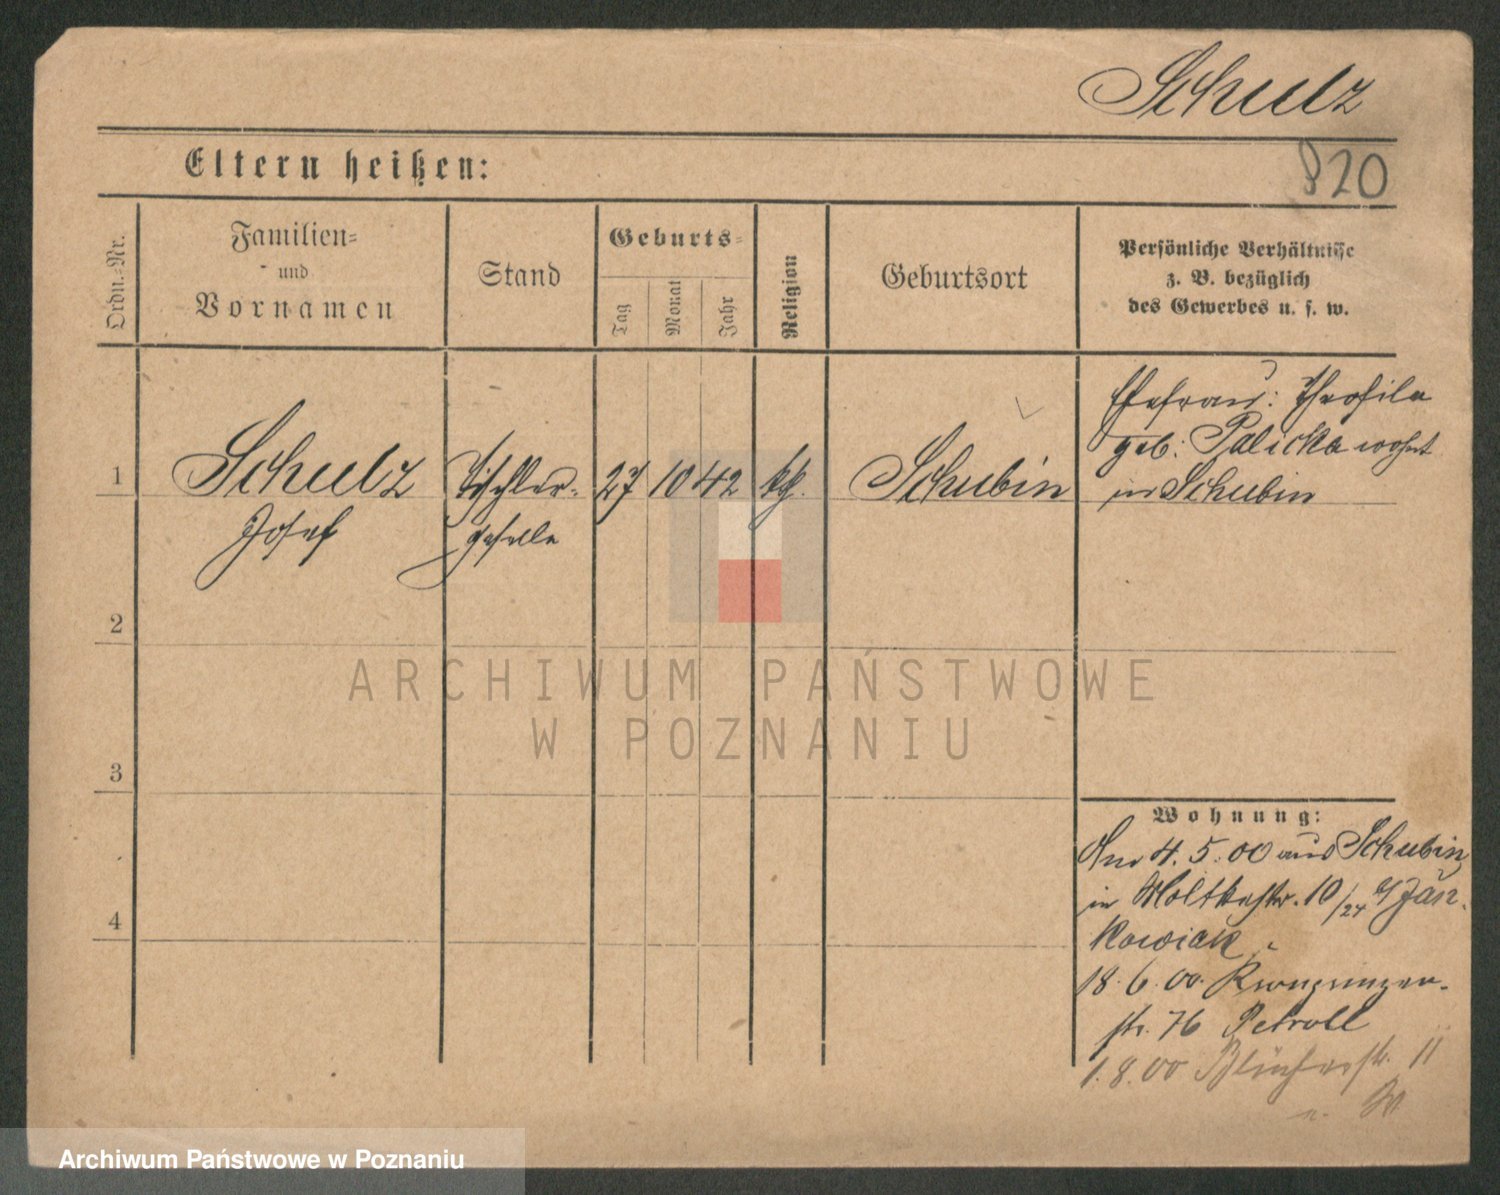 Schulz
Eltern heißen:
820
Ordn.=Nr.
Familien=
und
Vornamen
Stand
Geburts=
Tag
Monat
Jahr
Religion
Geburtsort
Persönliche Verhältnisse
z. B. bezüglich
des Gewerbes u. s. w.
1
Schulz
Josef
Tischler-
geselle
27
10
42
kth.
Schubin
Ehefrau: Theofila
geb: Palicka wohnt
in Schubin
2
3
4
Wohnung:
Am 4.5.00 aus Schubin
in Moltkestr. 10/24 b/ Jan-
kowiak
18.6.00. Kronprinzen-
str. 76 Petroll
1.8.00 Blücherstr. 11
ARCHIWUM PAŃSTWOWE
W POZNANIU
Archiwum Państwowe w Poznaniu